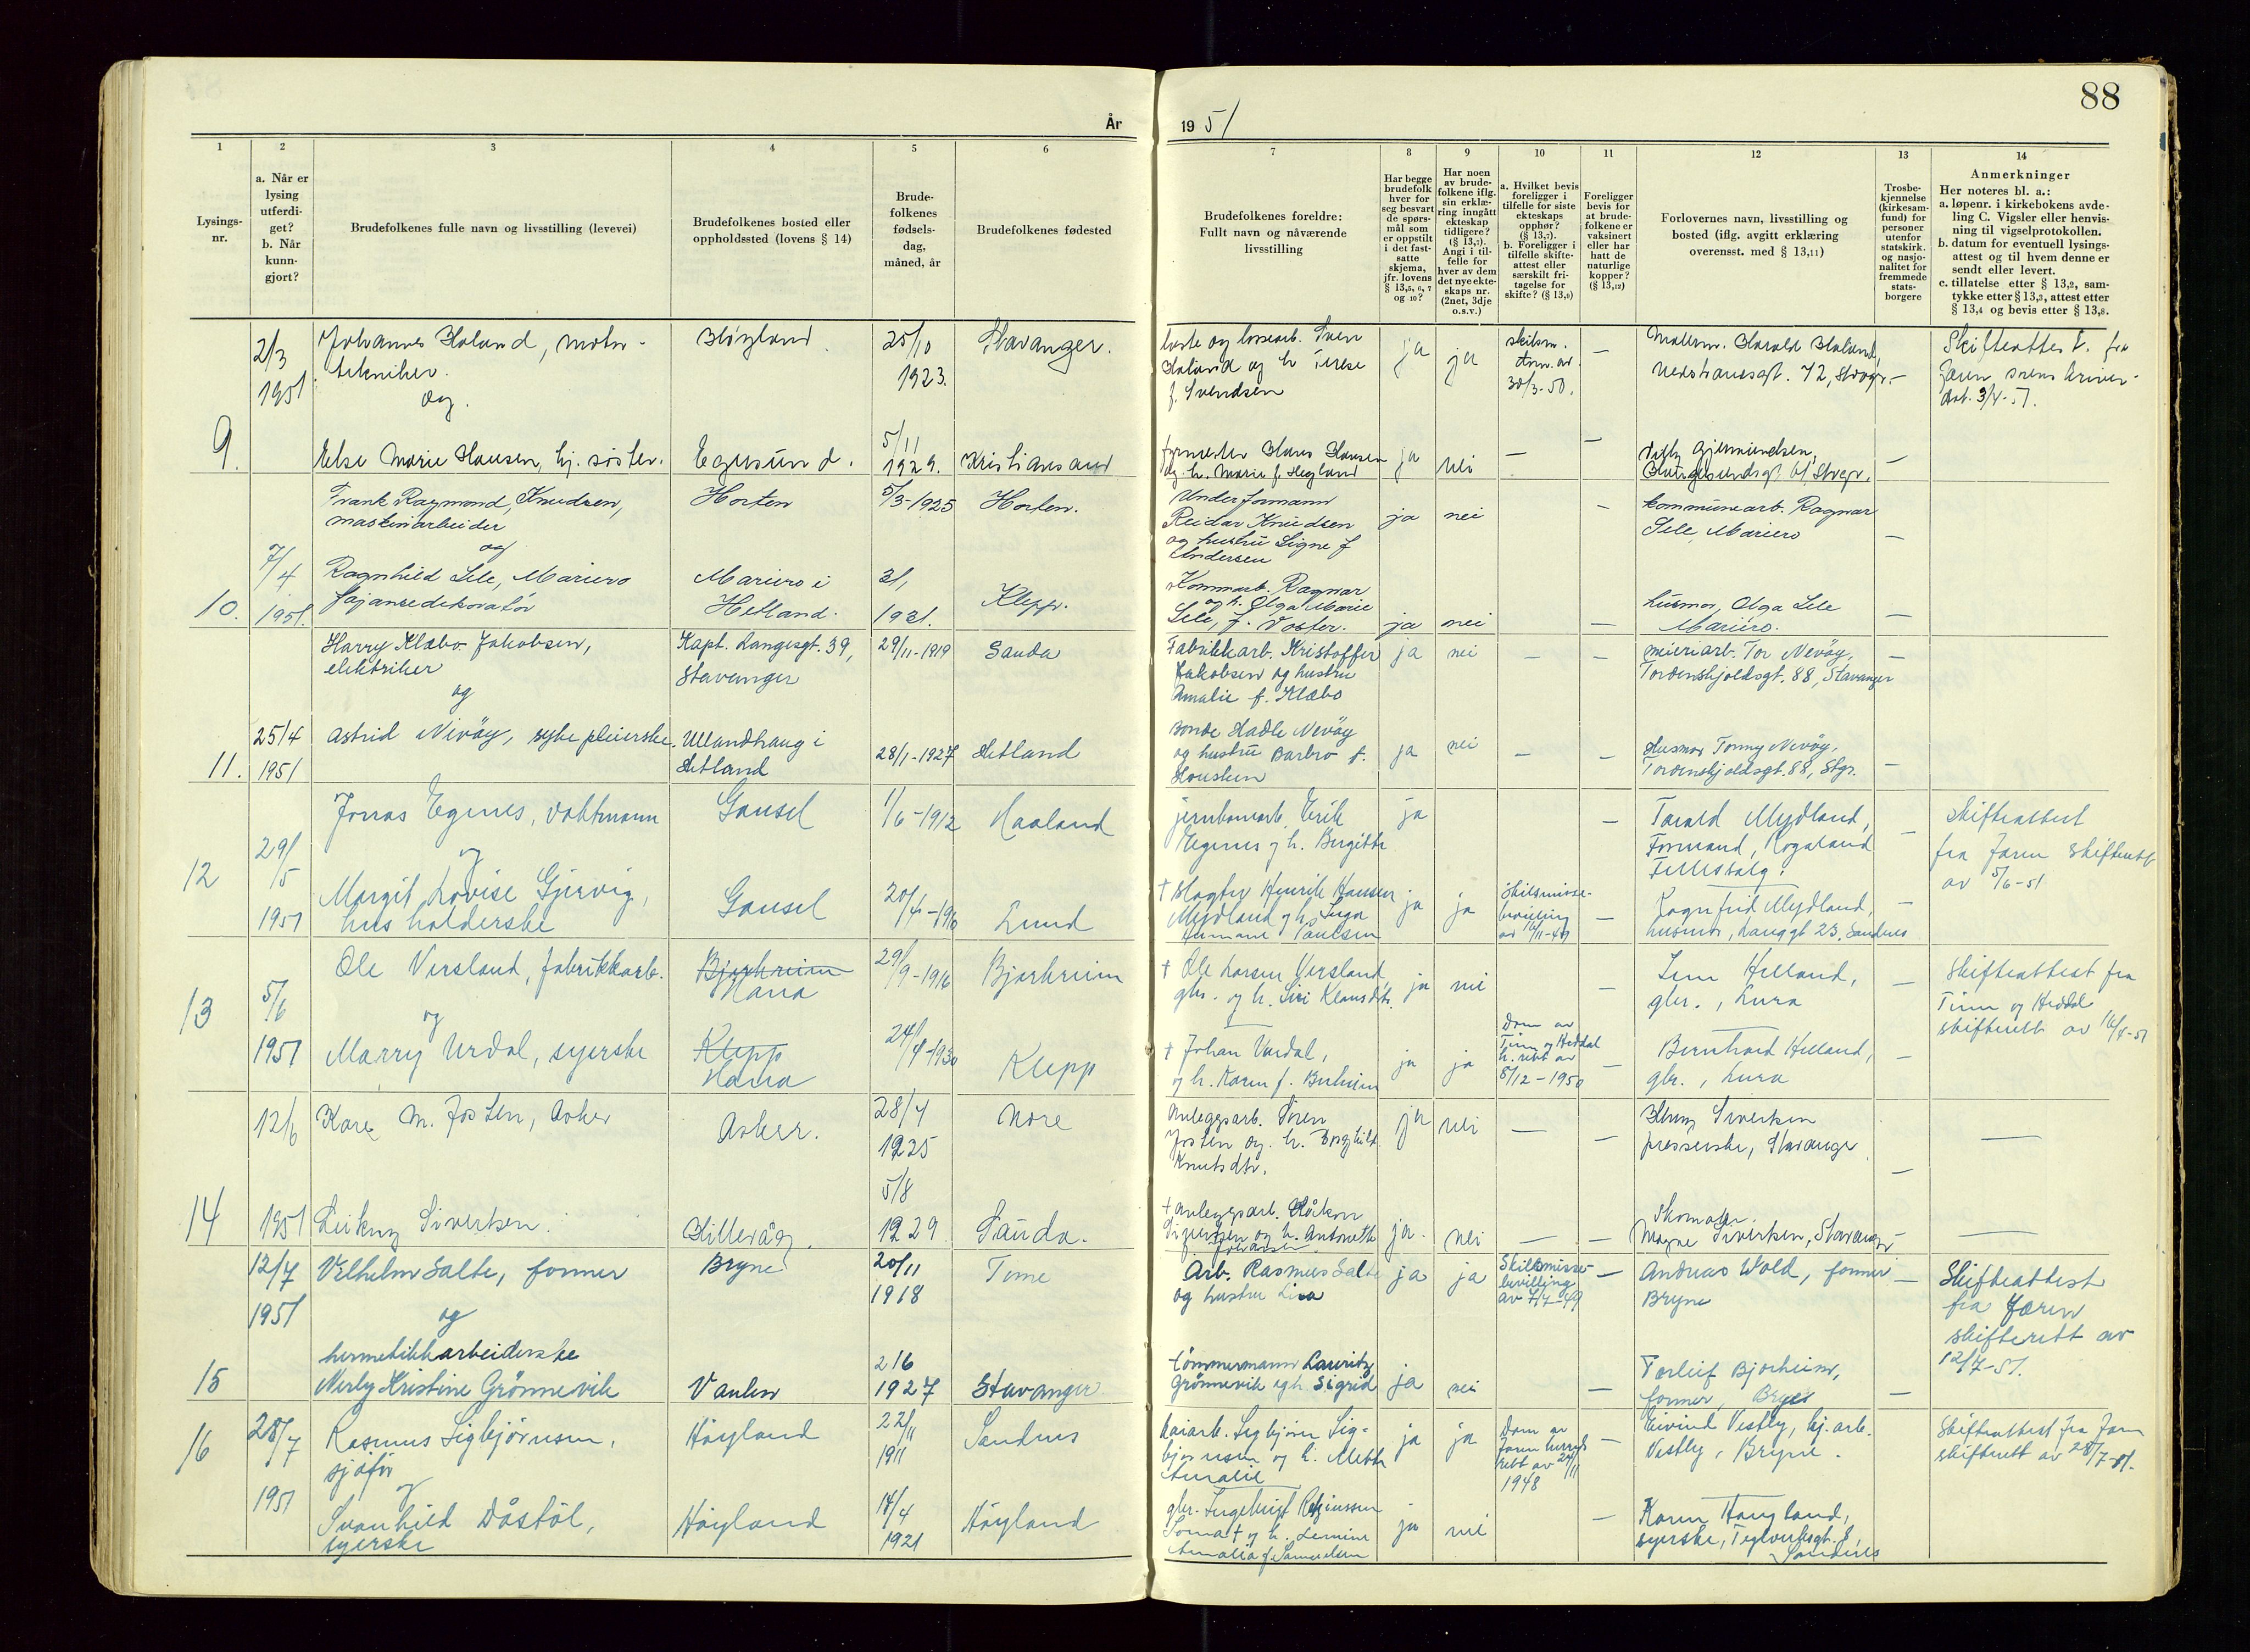 88
År
19 51
1
2
3
4
5
6
Lysings-
nr.
a. Når er
lysing
utferdi-
get?
b. Når
kunn-
gjort?
Brudefolkenes fulle navn og livsstilling (levevei)
Brudefolkenes bosted eller
oppholdssted (lovens § 14)
Brude-
folkenes
fødsels-
dag,
måned, år
Brudefolkenes fødested
7
8
9
10
11
12
13
14
Brudefolkenes foreldre:
Fullt navn og nåværende
livsstilling
Har begge
brudefolk
hver for
seg besvart
de spørs-
mål som
er oppstilt
i det fast-
satte
skjema,
jfr. lovens
§ 13,5, 6, 7
og 10?
Har noen
av brude-
folkene iflg.
sin erklæ-
ring inngått
ekteskap
tidligere?
(§ 13,7).
Angi i til-
felle for
hver av dem
det nye ekte-
skaps nr.
(2net, 3dje
o.s.v.)
a. Hvilket bevis
foreligger i
tilfelle for siste
ekteskaps
opphør?
(§ 13,7).
b. Foreligger i
tilfelle skifte-
attest eller
særskilt fri-
tagelse for
skifte? (§ 13,9)
Foreligger
bevis for
at brude-
folkene er
vaksinert
eller har
hatt de
naturlige
kopper?
(§ 13,12)
Forlovernes navn, livsstilling og
bosted (iflg. avgitt erklæring
overensst. med § 13,11)
Trosbe-
kjennelse
(kirkesam-
fund) for
personer
utenfor
statskirk.
og nasjo-
nalitet for
fremmede
stats-
borgere
Anmerkninger
Her noteres bl. a.:
a. løpenr. i kirkebokens avde-
ling C. Vigsler eller henvis-
ning til vigselprotokollen.
b. datum for eventuell lysings-
attest og til hvem denne er
sendt eller levert.
c. tillatelse etter § 13,2, sam-
tykke etter § 13,3, attest etter
§ 13,4 og bevis etter § 13,8.
9.
2/3
1951
Johannes Haland, motor-
tekniker.
og
Høyland
25/10
1923.
Stavanger.
Sven
Haland og h. Terese
f. Svendsen
ja
ja
skilsm.
av
30/3-50.
—
Harald Haland,
72, Stvgr.
—
Skifteattest fra
Jæren sorenskriver
3/4-51.
Else Marie Hansen, hj. søster.
Egersund.
5/11
1929.
Kristiansand
Hans Hansen
og h. Marie f. Hegland
ja
nei
—
—
Gjermundsen,
Stvgr.
—
10.
7/4
1951.
Frank Raymond Knudsen,
maskinarbeider
og
Horten
5/3-1925
Horten.
Underformann
Reidar Knudsen
og hustru Signe f
Andersen
ja
nei
—
Kommunearb. Ragnar
Lele, Mariero
—
Ragnhild Lele, Mariero
fajansedekoratør
Mariero i
Hetland.
1931.
Klepp.
Kommarb. Ragnar
og h. Olga Marie
Lele, f. Voster.
ja
nei
—
Husmor, Olga Lele
Mariero.
—
11.
25/4
1951
Harry Klæbo Jakobsen,
elektriker
og
Kapt. Langesgt. 39,
Stavanger
29/11-1919
Sauda
Fabrikkarb. Kristoffer
Jakobsen og hustru
Amalie f. Klæbo
ja
nei
—
—
meieriarb. Tor Nevöy,
Tordenskjoldsgt. 88, Stavanger
—
Astrid Nevöy, sykepleierske.
Ullandhaug i
Hetland
28/1-1927
Hetland
Bonde Hadle Nevöy
og hustru Barbro f.
Housken
ja
nei
—
—
Husmor Tonny Nevöy,
Tordenskjoldsgt. 88, Stgr.
—
12
29/5
1951
Jonas Egenes, vaktmann
og
Gausel
1/6-1912
Haaland
jernbanearb. Erik
Egenes og h. Birgitte
ja
—
Tarald Mydland,
Formand, Rogaland
Fellessalg.
—
Skifteattest
fra Jæren Skifterett
av 5/6-51
Margit Lovise Gjervig,
husholderske
Gausel
Lund
† slagter Henrik Hansen
Mydland og h. Inga
Paulsen
ja
ja
Skilsmisse-
bevilling
av 16/11-49
—
Ragnfrid Mydland,
husmor, Langgt 23, Sandnes
—
13
5/6
1951
Ole Versland, fabrikkarb.
og
Bjerkreim
Hana
29/9-1916
Bjerkreim
† Ole Larsen Versland,
gbr. og h. Siri Klausdtr.
ja
nei
—
Helland,
gbr., Lura
—
Skifteattest fra
Tinn og Heddal
skifterett av 16/4-51
Marry Urdal, syerske
Klepp
Hana
24/4-1930
Klepp
† Johan Urdal,
og h. Karen f.
ja
ja
Dom av
Tinn og Heddal
h. rett av
8/12-1950
—
Bernhard Helland,
gbr., Lura
—
14
12/6
1951
Kåre M. Josten, Asker
Asker.
28/4
1925
Nore
Anleggsarb. Sören
Josten og h. Borghild
Knutsdtr.
ja
nei
—
—
Sivertsen
presserske, Stavanger
—
—
Leikny Sivertsen.
Hillevåg.
5/8
1929
Sauda.
† anleggsarb. Håkon
Sivertsen og h. Antonette
Johansen.
ja.
nei
—
—
Skomaker
Magne Sivertsen, Stavanger
—
—
15
12/7
1951
Vilhelm Salte, former
og
Bryne
20/11
1918
Time
Arb. Rasmus Salte
og hustru Lisa
ja
ja
Skilsmisse-
bevilling
av 7/7-49
—
Andreas Wold, former
Bryne
—
Skifteattest
fra Jæren
skifterett av
12/7-51.
hermetikkarbeiderske
Nerly Kristine Grönnevik
Vaulen
2/6
1927
Stavanger
tömmermann Lauritz
Grönnevik og h. Sigrid
ja
nei
—
Torleif Bjorheim,
former, Bryne
—
16
28/7
1951
Rasmus Sigbjörnsen,
sjåför
og
Höyland
22/11
1911
Sandnes
kaiarb. Sigbjörn Sig-
björnsen og h. Mette
Amalie
ja
ja
Dom av
Jæren herreds
rett av 24/11
1948
—
Eivind Vestly, hj. arb.
Vestly, Bryne.
Skifteattest fra Jæren
skifterett av 28/7-51.
Svanhild Dåstöl,
syerske
Höyland
14/4
1921
Höyland
gbr. Ingebrigt
og h. Lemine
Amalia f. Samuelsen
ja
nei
—
Karen Haugland,
syerske, Teglverksgt. 8,
Sandnes